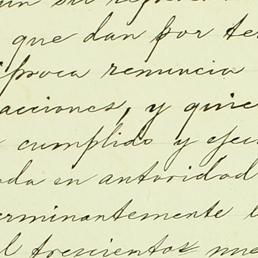 que dan por te
iproca renuncia
acciones, y quie
cumplido y ejec
ada en autoridad
erminantemente l
l trescientos nue